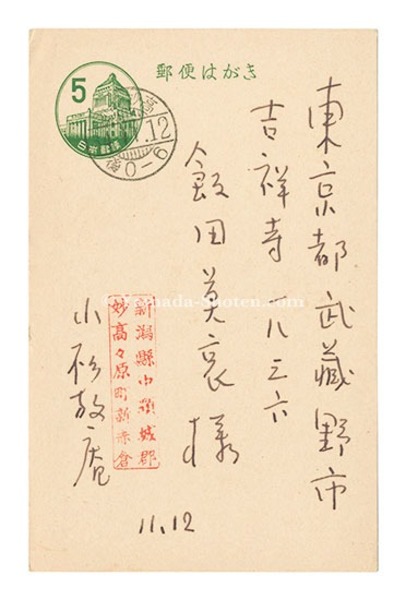 郵便はがき
5
日本郵便
高
.12
0-6
東京都武蔵野市
吉祥寺一八三六
飯田莫哀様
新潟縣中頸城郡
妙高々原町新赤倉
小杉放庵
11.12